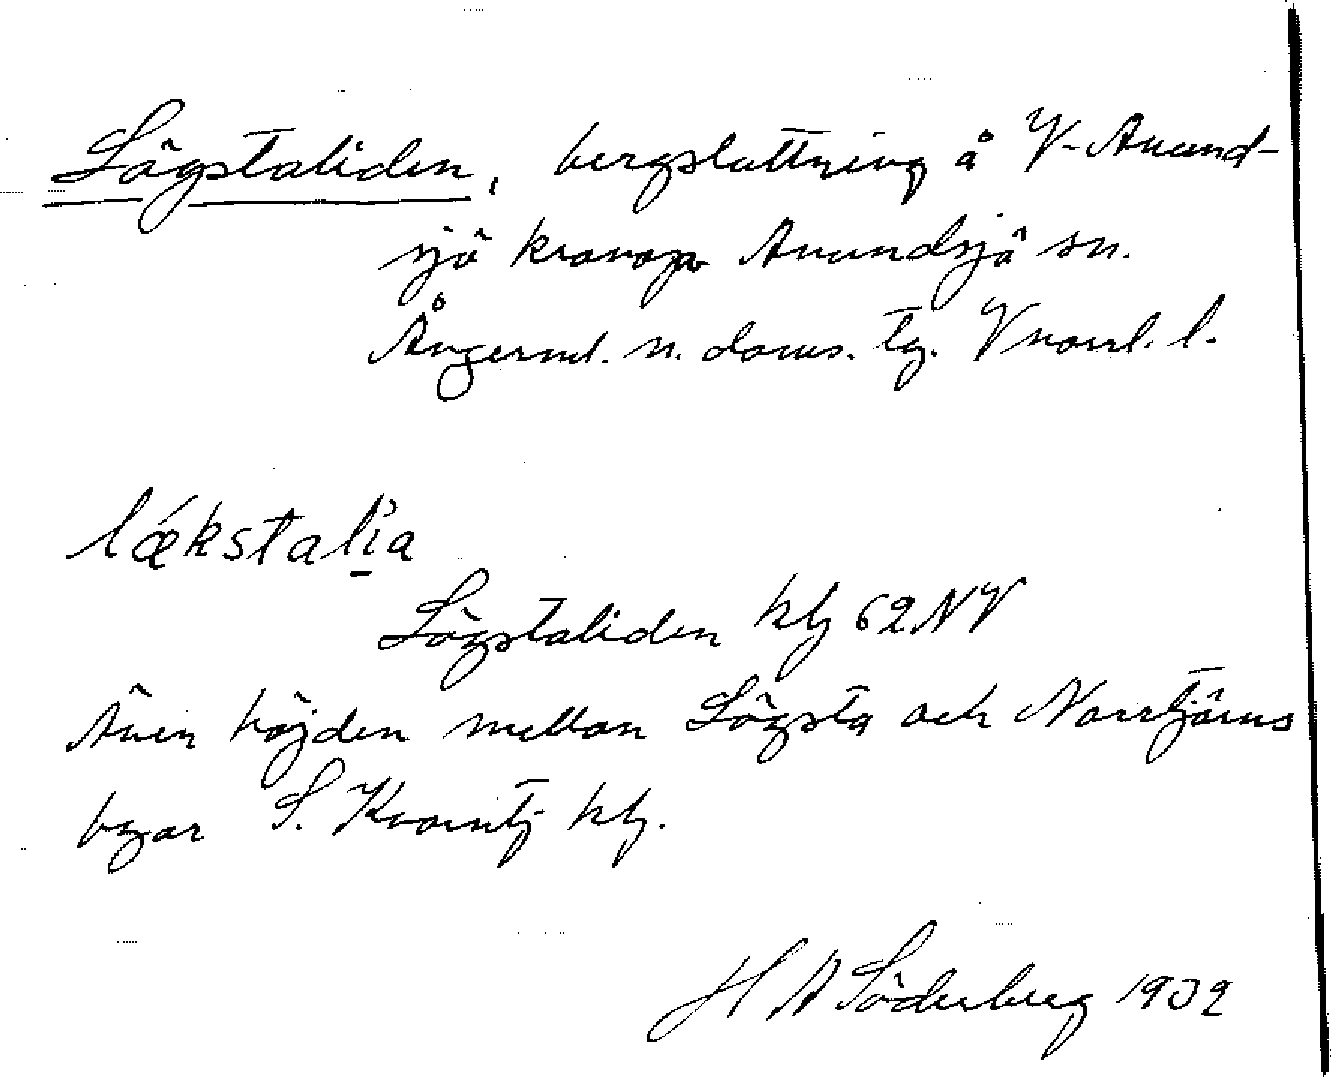 Lägstaliden, bergsluttning å V-Anund-
sjö kronop Anundsjö sn.
Ångerml. n. doms. tg. Vnorrl. l.
lǽkstalia
Lägstaliden kbg 62NV
Även höjden mellan Lägsta och Norrtjärns
byar S. Kvarntj kbg.
H A Söderberg 1932